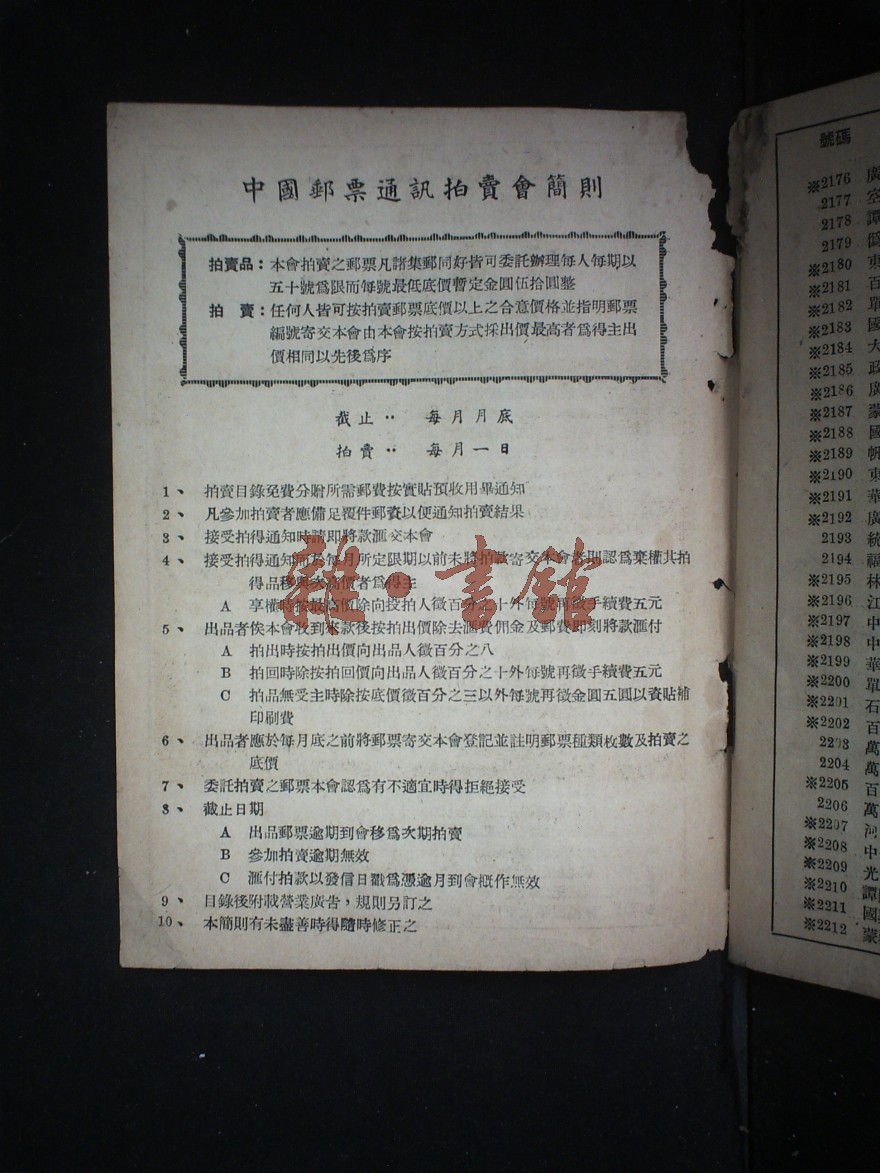 中國郵票通訊拍賣會簡則
拍賣品：本會拍賣之郵票凡諸集郵同好皆可委託辦理每人每期以
五十號爲限而每號最低底價暫定金圓伍拾圓整
拍　賣：任何人皆可按拍賣郵票底價以上之合意價格並指明郵票
編號寄交本會由本會按拍賣方式採出價最高者爲得主出
價相同以先後爲序
截止‥　每月月底
拍賣‥　每月一日
1、拍賣目錄免費分贈所需郵費按實貼預收用畢通知
2、凡參加拍賣者應備足覆件郵資以便通知拍賣結果
3、接受拍得通知時請即將款滙交本會
4、接受拍得通知而於每月所定限期以前未將拍款寄交本會者則認爲棄權其拍
得品移與次高價者爲得主
A　享權時按最高價除向投拍人徵百分之十外每號再徵手續費五元
5、出品者俟本會收到來款後按拍出價除去滙費佣金及郵費即刻將款滙付
A　拍出時按拍出價向出品人徵百分之八
B　拍回時除按拍回價向出品人徵百分之十外每號再徵手續費五元
C　拍品無受主時除按底價徵百分之三以外每號再徵金圓五圓以資貼補
印刷費
6、出品者應於每月底之前將郵票寄交本會登記並註明郵票種類枚數及拍賣之
底價
7、委託拍賣之郵票本會認爲有不適宜時得拒絕接受
8、截止日期
A　出品郵票逾期到會移爲次期拍賣
B　參加拍賣逾期無效
C　滙付拍款以發信日戳爲憑逾月到會概作無效
9、目錄後附載營業廣告，規則另訂之
10、本簡則有未盡善時得隨時修正之
雜·書館
號碼
※2176 廣
2177 空
2178 譚
2179
※2180 東
※2181 百
※2182 單
※2183 國
※2184 大
※2185 政
※2186 廣
※2187 蒙
※2188 國
※2189 帆
※2190 東
※2191 華
※2192 廣
2193 統
2194 福
※2195 林
※2196 江
※2197 中
※2198 中
※2199 華
※2200 單
※2201 石
※2202 百
2203 萬
2204 萬
※2205 百
2206 萬
※2207 河
※2208 中
※2209 光
※2210 譚
※2211 國
※2212 蒙